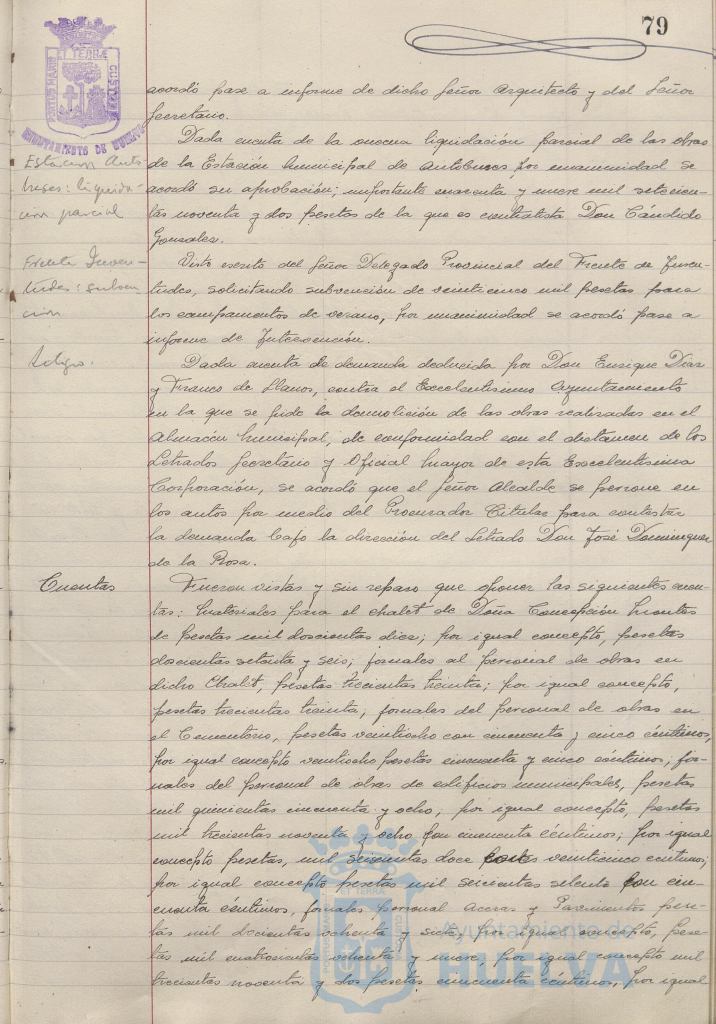 79
PORTUS MARIS ET TERRÆ CUSTODIA
AYUNTAMIENTO DE HUELVA
acordó pase a informe de dicho Señor Arquitecto y del Señor
Secretario.
Estación Auto-
buses: liquida-
ción parcial
Dada cuenta de la onceava liquidación parcial de las obras
de la Estación Municipal de Autobuses, por unanimidad se
acordó su aprobación; importante cuarenta y nueve mil setecien-
tas noventa y dos pesetas de la que es contratista Don Cándido
Gonzalez.
Frente Juven-
tudes: subven-
ción
Visto escrito del Señor Delegado Provincial del Frente de Juven-
tudes, solicitando subvención de veinticinco mil pesetas para
los campamentos de verano, por unanimidad se acordó pase a
informe de Intervención.
Dada cuenta de demanda deducida por Don Enrique Diaz
y Franco de Llanos, contra el Excelentísimo Ayuntamiento
en la que se pide la demolición de las obras realizadas en el
Almacén Municipal, de conformidad con el dictamen de los
Letrados Secretario y Oficial Mayor de esta Excelentísima
Corporación, se acordó que el Señor Alcalde se persone en
los autos por medio del Procurador Titular para contestar
la demanda bajo la dirección del Letrado Don José Dominguez
de la Rosa.
Cuentas
Fueron vistas y sin reparo que oponer las siguientes cuen-
tas: Materiales para el chalet de Doña Concepción Montes
de pesetas mil doscientas diez; por igual concepto, pesetas
doscientas setenta y seis; jornales al personal de obras en
dicho Chalet, pesetas trecientas treinta; por igual concepto,
pesetas trecientas treinta; jornales del personal de obras en
el Cementerio, pesetas veintiocho con cincuenta y cinco céntimos,
por igual concepto veintiocho pesetas cincuenta y cinco céntimos; jor-
nales del personal de obras de edificios municipales, pesetas
mil quinientas cincuenta y ocho, por igual concepto, pesetas
mil trecientas noventa y ocho con cincuenta céntimos; por igual
concepto pesetas, mil seiscientas doce con veinticinco centimos;
por igual concepto pesetas mil seiscientas setenta con cin-
cuenta céntimos, jornales personal Aceras y Pavimentos pese-
tas mil docientas ochenta y siete, por igual concepto, pese-
tas mil cuatrocientas ochenta y nueve, por igual concepto mil
trecientas noventa y dos pesetas cincuenta céntimos, por igual
Ayuntamiento de
HUELVA